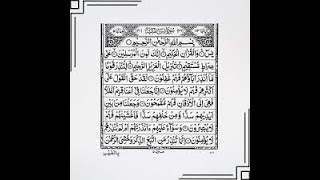 بِسْمِ اللهِ الرَّحْمٰنِ الرَّحِيْمِ
يٰسٓ ۝ وَالْقُرْاٰنِ الْحَكِيْمِ ۝ اِنَّكَ لَمِنَ الْمُرْسَلِيْنَ ۝ عَلٰى
صِرَاطٍ مُّسْتَقِيْمٍ ۝ تَنْزِيْلَ الْعَزِيْزِ الرَّحِيْمِ ۝ لِتُنْذِرَ قَوْمًا
مَّآ اُنْذِرَ اٰبَآؤُهُمْ فَهُمْ غٰفِلُوْنَ ۝ لَقَدْ حَقَّ الْقَوْلُ عَلٰٓى
اَكْثَرِهِمْ فَهُمْ لَا يُؤْمِنُوْنَ ۝ اِنَّا جَعَلْنَا فِيْٓ اَعْنَاقِهِمْ اَغْلٰلًا
فَهِيَ اِلَى الْاَذْقَانِ فَهُمْ مُّقْمَحُوْنَ ۝ وَجَعَلْنَا مِنْۢ بَيْنِ
اَيْدِيْهِمْ سَدًّا وَّمِنْ خَلْفِهِمْ سَدًّا فَاَغْشَيْنٰهُمْ فَهُمْ
لَا يُبْصِرُوْنَ ۝ وَسَوَآءٌ عَلَيْهِمْ ءَاَنْذَرْتَهُمْ اَمْ لَمْ تُنْذِرْهُمْ
لَا يُؤْمِنُوْنَ ۝ اِنَّمَا تُنْذِرُ مَنِ اتَّبَعَ الذِّكْرَ وَخَشِيَ الرَّحْمٰنَ